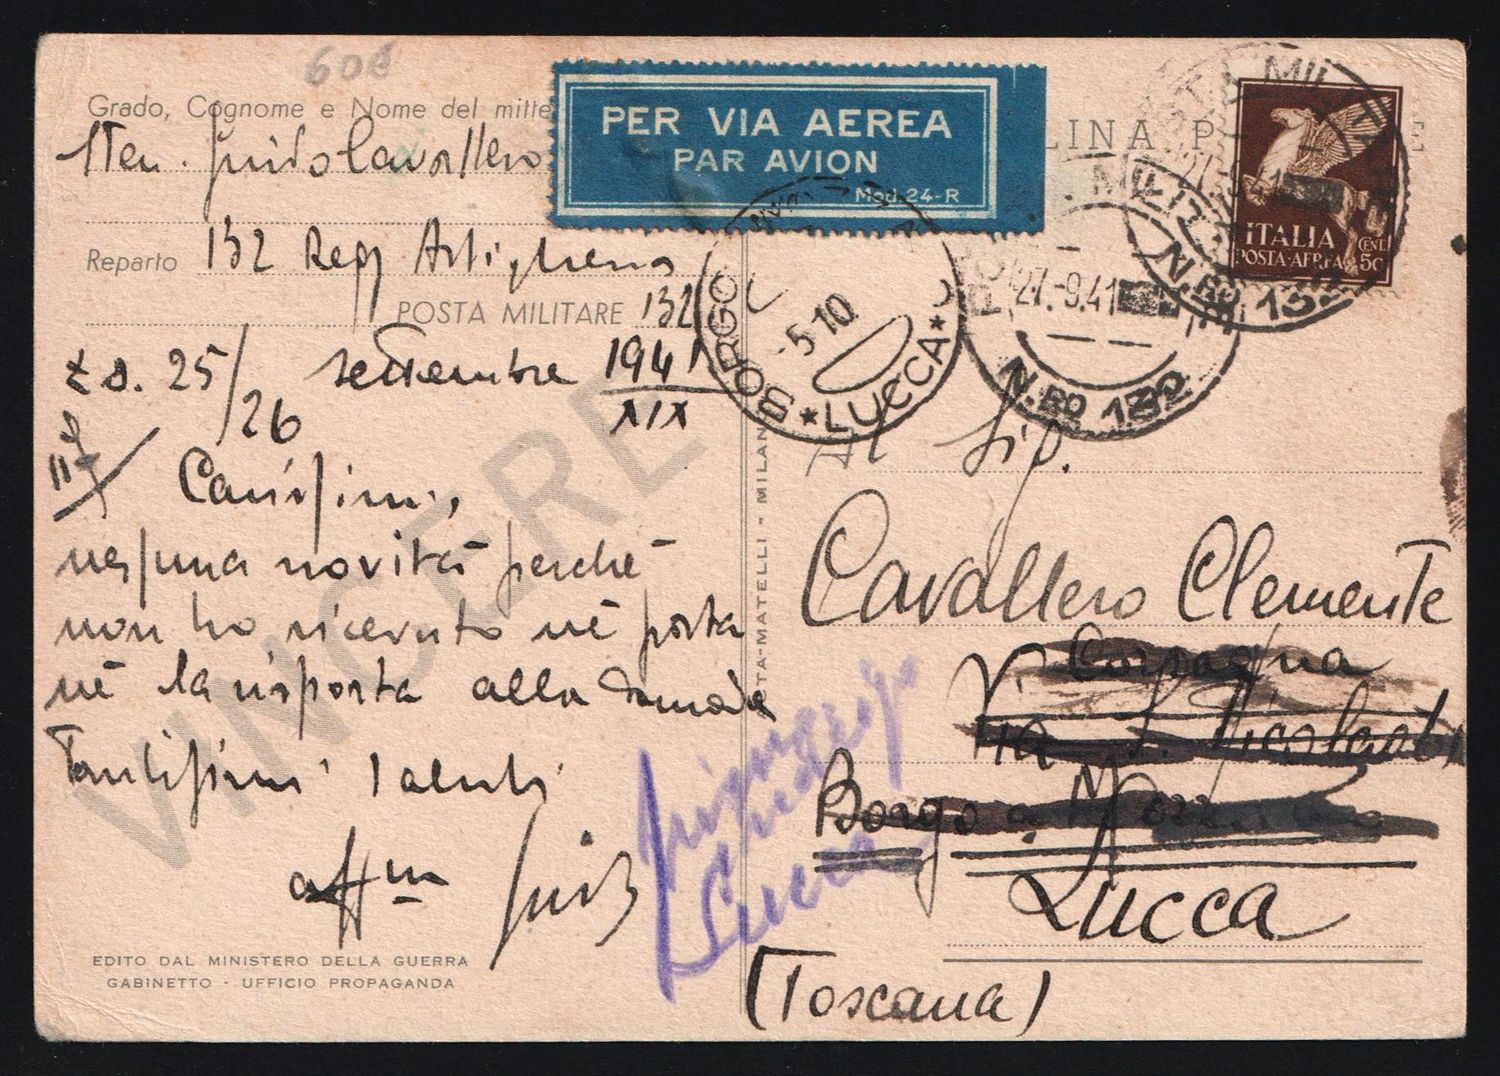 606
Grado, Cognome e Nome del mitte
STen. Guido Cavallero
Reparto 132 Regg Artiglieria
POSTA MILITARE 132
z.o. 25/26 settembre 1941
XIX
Carissimi,
nessuna novità perché
non ho ricevuto nè posta
nè la risposta alla
Tantissimi saluti
aff.m Guido
VINCERE
EDITO DAL MINISTERO DELLA GUERRA
GABINETTO - UFFICIO PROPAGANDA
PER VIA AEREA
PAR AVION
Mod. 24-R
LINA P E
ITALIA
POSTA-AEREA
CENT. 50
POSTA MILITARE
N.RO 132
27.9.41
MILIT
N.RO 132
BORGO
-5.10
*LUCCA*
TA-MATELLI - MILAN
Al Sig.
Cavallero Clemente
Via S.
Borgo a Mozzano
Lucca
(Toscana)
Lucca